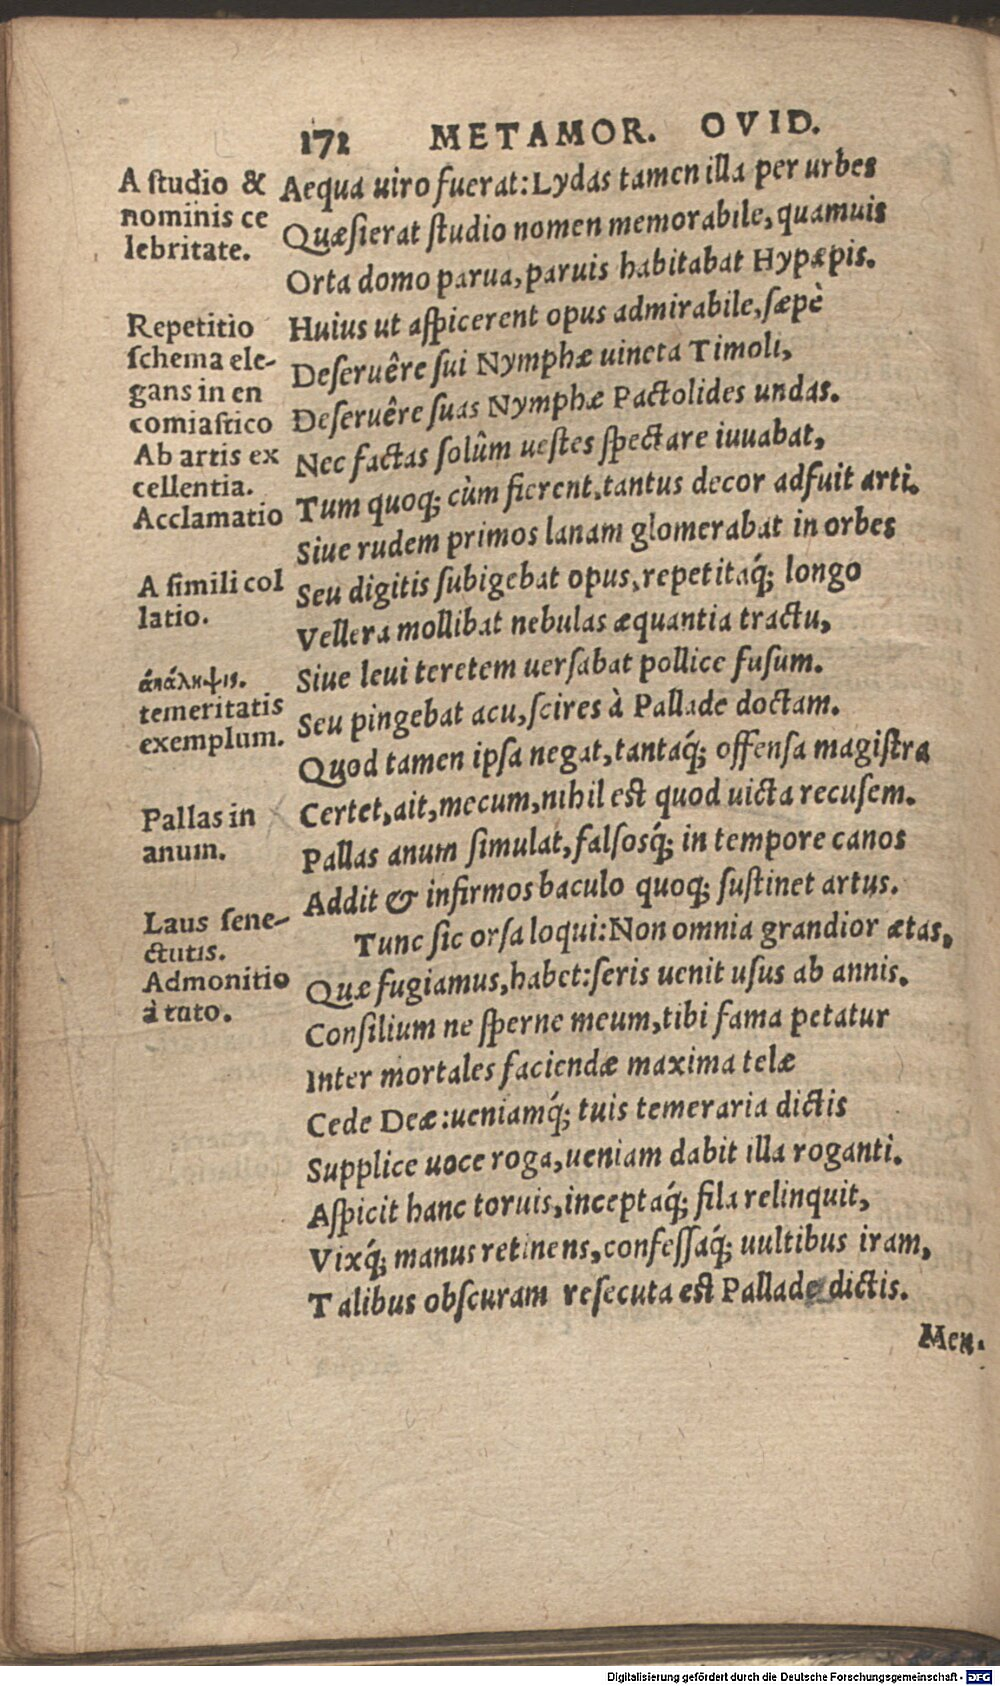 172 METAMOR. OVID.
A studio &
nominis ce
lebritate.
Repetitio
schema ele-
gans in en
comiastico
Ab artis ex
cellentia.
Acclamatio
A simili col
latio.
ἀνάληψις.
temeritatis
exemplum.
Pallas in
anum.
Laus sene-
ctutis.
Admonitio
à tuto.
Aequa uiro fuerat: Lydas tamen illa per urbes
Quæsierat studio nomen memorabile, quamuis
Orta domo parua, paruis habitabat Hypæpis.
Huius ut aspicerent opus admirabile, sæpè
Deseruêre sui Nymphæ uineta Timoli,
Deseruêre suas Nymphæ Pactolides undas.
Nec factas solùm uestes spectare iuuabat,
Tum quoq; cùm fierent, tantus decor adfuit arti.
Siue rudem primos lanam glomerabat in orbes
Seu digitis subigebat opus, repetitaq́; longo
Vellera mollibat nebulas æquantia tractu,
Siue leui teretem uersabat pollice fusum.
Seu pingebat acu, scires à Pallade doctam.
Quod tamen ipsa negat, tantaq́; offensa magistra
Certet, ait, mecum, nihil est quod uicta recusem.
Pallas anum simulat, falsosq́; in tempore canos
Addit & infirmos baculo quoq; sustinet artus.
Tunc sic orsa loqui: Non omnia grandior ætas,
Quæ fugiamus, habet: seris uenit usus ab annis.
Consilium ne sperne meum, tibi fama petatur
Inter mortales faciendæ maxima telæ
Cede Deæ: ueniamq́; tuis temeraria dictis
Supplice uoce roga, ueniam dabit illa roganti.
Aspicit hanc toruis, inceptaq́; fila relinquit,
Vixq́; manus retinens, confessaq́; uultibus iram,
Talibus obscuram resecuta est Pallade dictis.
Men.
Digitalisierung gefördert durch die Deutsche Forschungsgemeinschaft - DFG